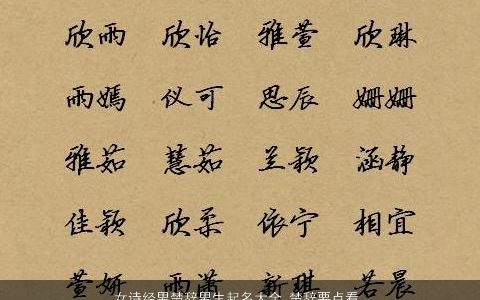 欣雨 欣怡 雅萱 欣琳
雨嫣 仪可 思辰 姗姗
雅茹 慧茹 兰颖 涵静
佳颖 欣柔 依宁 相宜
萱妍 雨潇 新琪 若晨
女诗经男楚辞男生起名大全 楚辞要点看